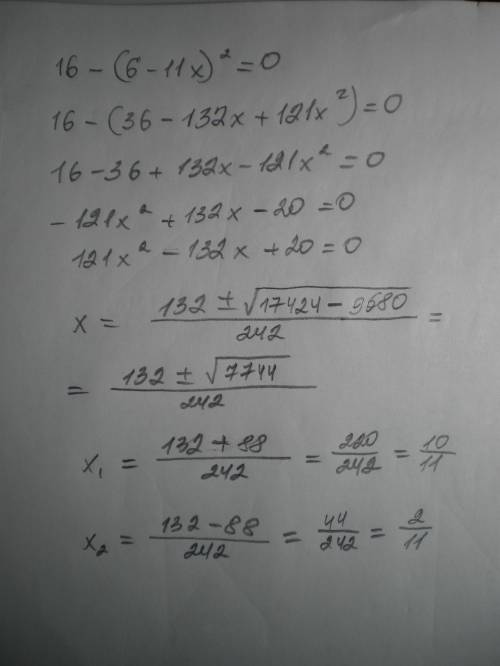 16 - (6 - 11x)² = 0
16 - (36 - 132x + 121x²) = 0
16 - 36 + 132x - 121x² = 0
- 121x² + 132x - 20 = 0
121x² - 132x + 20 = 0
x = (132 ± √(17424 - 9680))/242 =
= (132 ± √7744)/242
x₁ = (132 + 88)/242 = 220/242 = 10/11
x₂ = (132 - 88)/242 = 44/242 = 2/11